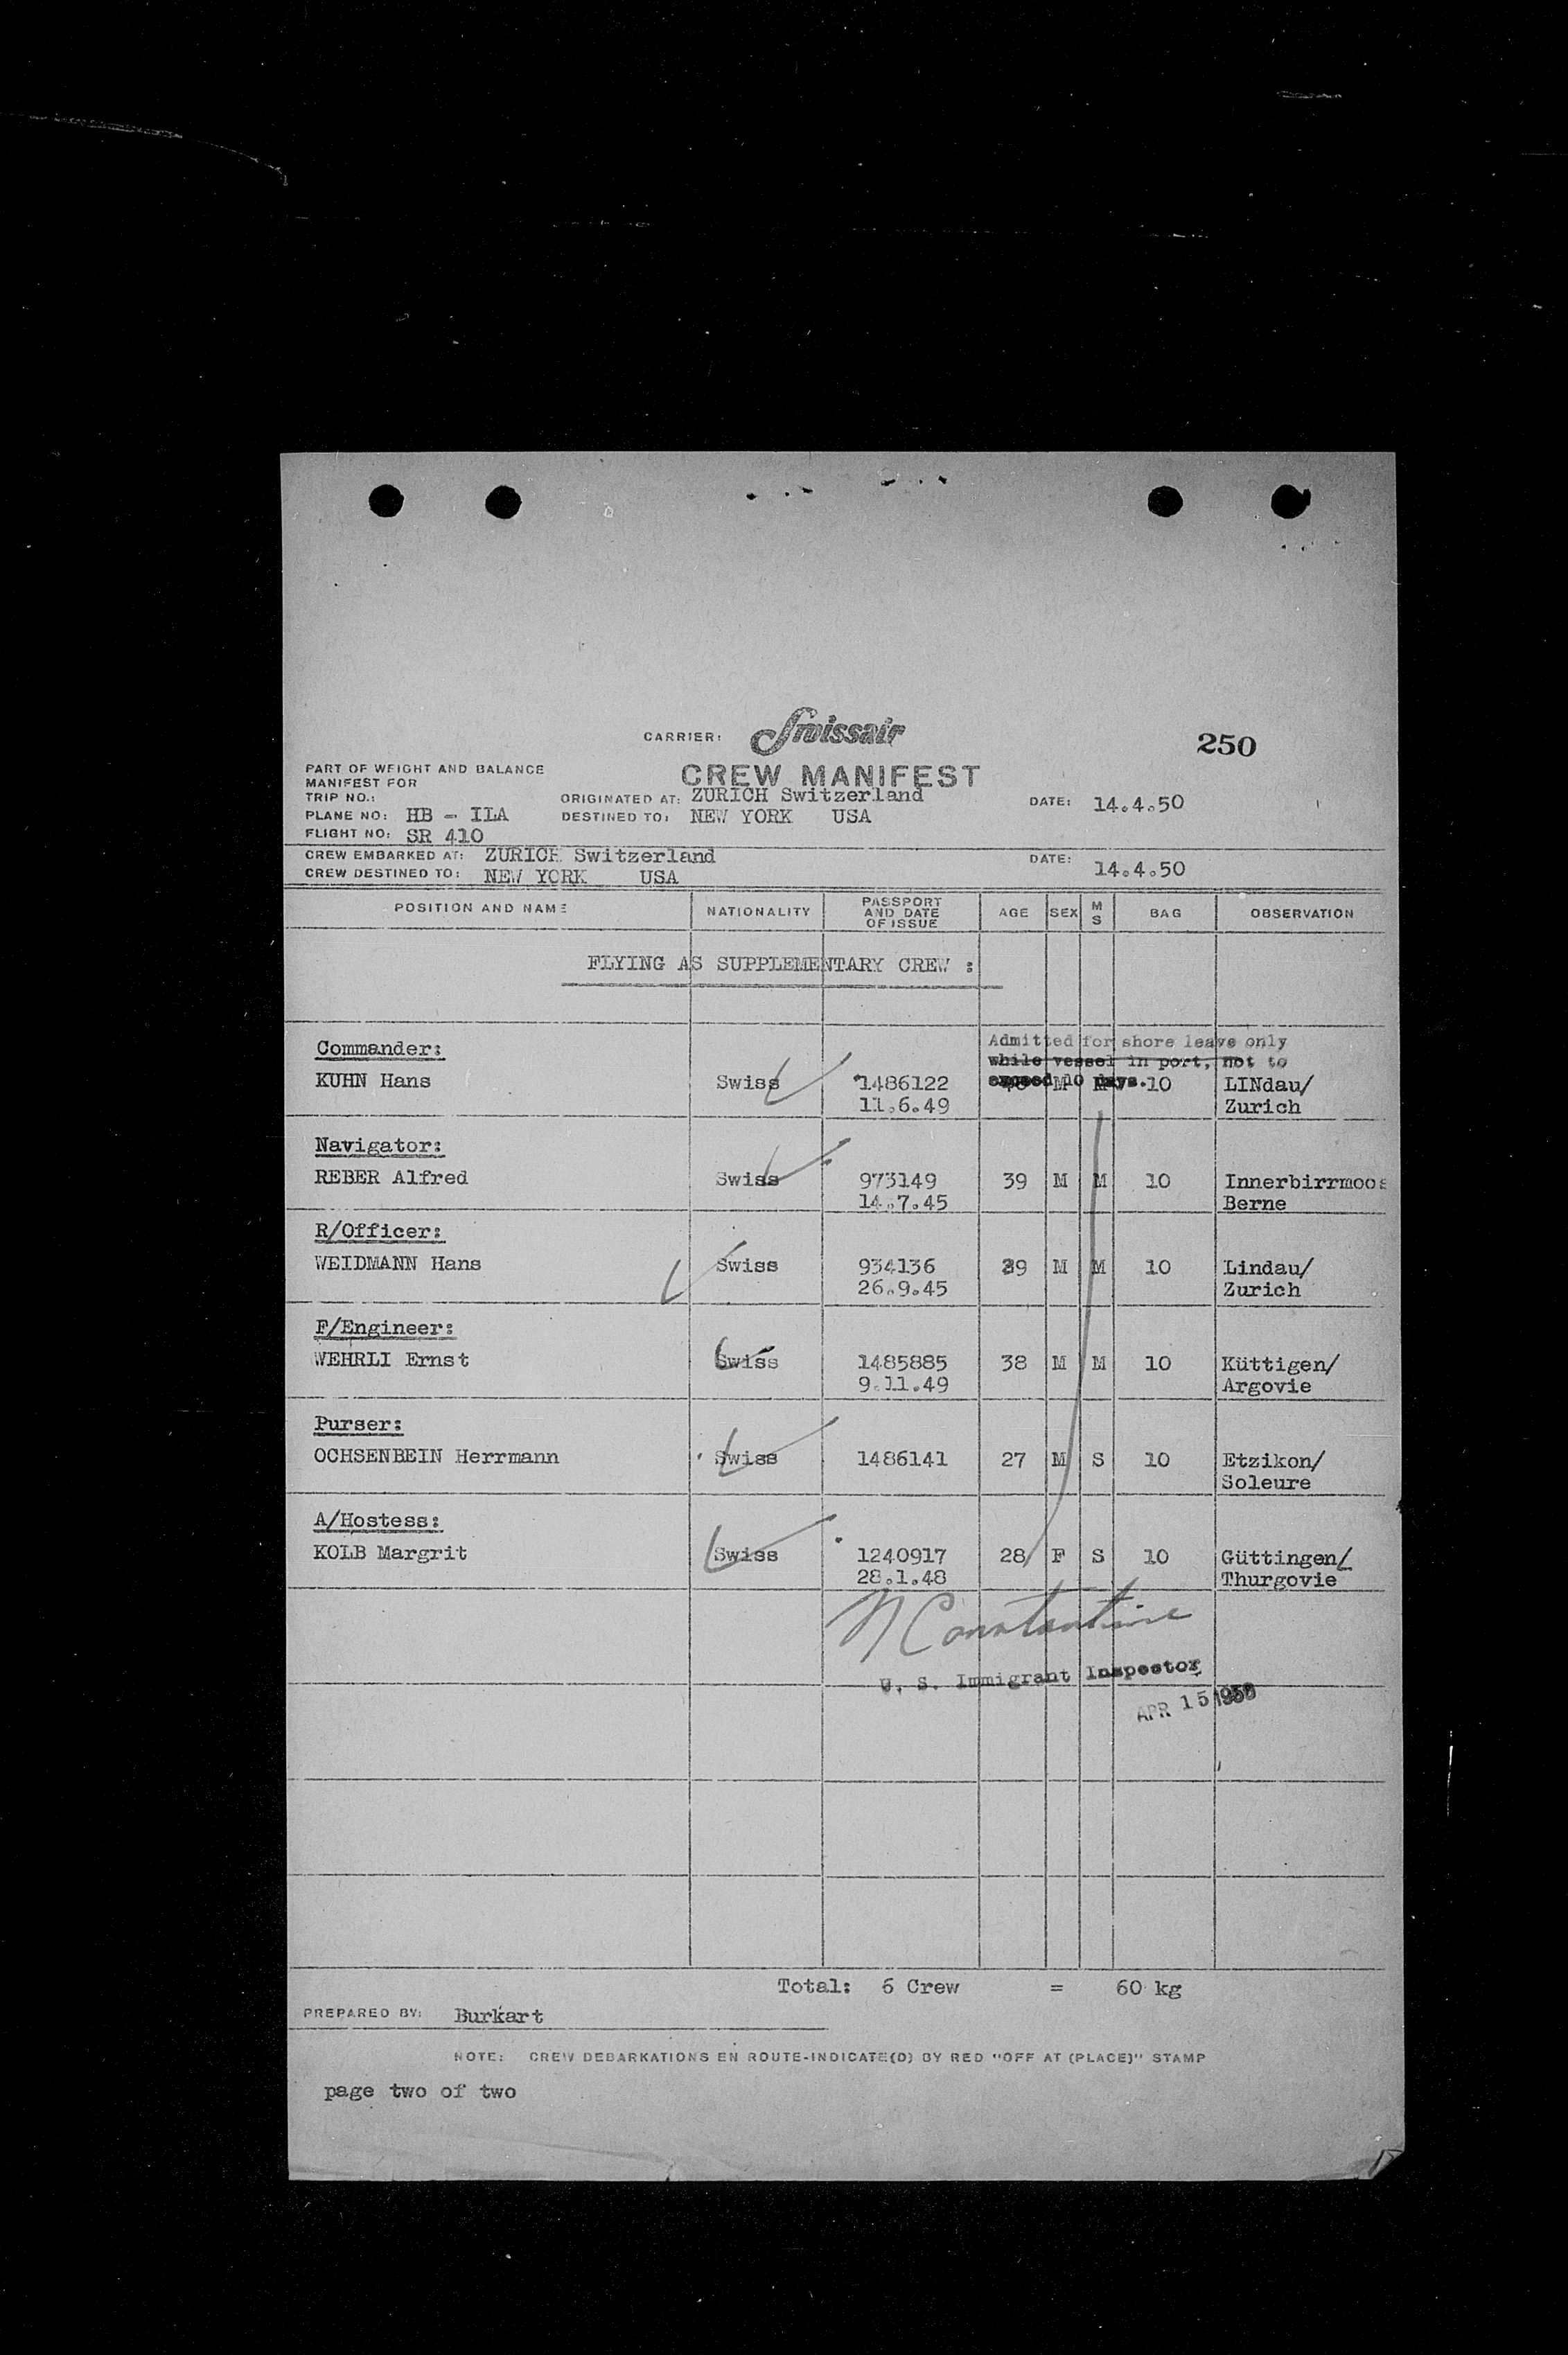 CARRIER: Swissair
250
PART OF WEIGHT AND BALANCE
MANIFEST FOR
CREW MANIFEST
TRIP NO.:
ORIGINATED AT: ZURICH Switzerland
DATE: 14.4.50
PLANE NO: HB - ILA
DESTINED TO: NEW YORK USA
FLIGHT NO: SR 410
CREW EMBARKED AT: ZURICH Switzerland
DATE: 14.4.50
CREW DESTINED TO: NEW YORK USA
POSITION AND NAME NATIONALITY PASSPORT AND DATE OF ISSUE AGE SEX M S BAG OBSERVATION
FLYING AS SUPPLEMENTARY CREW :
Admitted for shore leave only
while vessel in port, not to
exceed 10 days.
Commander:
KUHN Hans Swiss 1486122 M 10 LINdau/
11.6.49 Zurich
Navigator:
REBER Alfred Swiss 973149 39 M M 10 Innerbirrmoos
14.7.45 Berne
R/Officer:
WEIDMANN Hans Swiss 934136 39 M M 10 Lindau/
26.9.45 Zurich
F/Engineer:
WEHRLI Ernst Swiss 1485885 38 M M 10 Küttigen/
9.11.49 Argovie
Purser:
OCHSENBEIN Herrmann Swiss 1486141 27 M S 10 Etzikon/
Soleure
A/Hostess:
KOLB Margrit Swiss 1240917 28 F S 10 Güttingen/
28.1.48 Thurgovie
N Constantine
U. S. Immigrant Inspector
APR 15 1950
Total: 6 Crew = 60 kg
PREPARED BY: Burkart
NOTE: CREW DEBARKATIONS EN ROUTE-INDICATE(D) BY RED "OFF AT (PLACE)" STAMP
page two of two